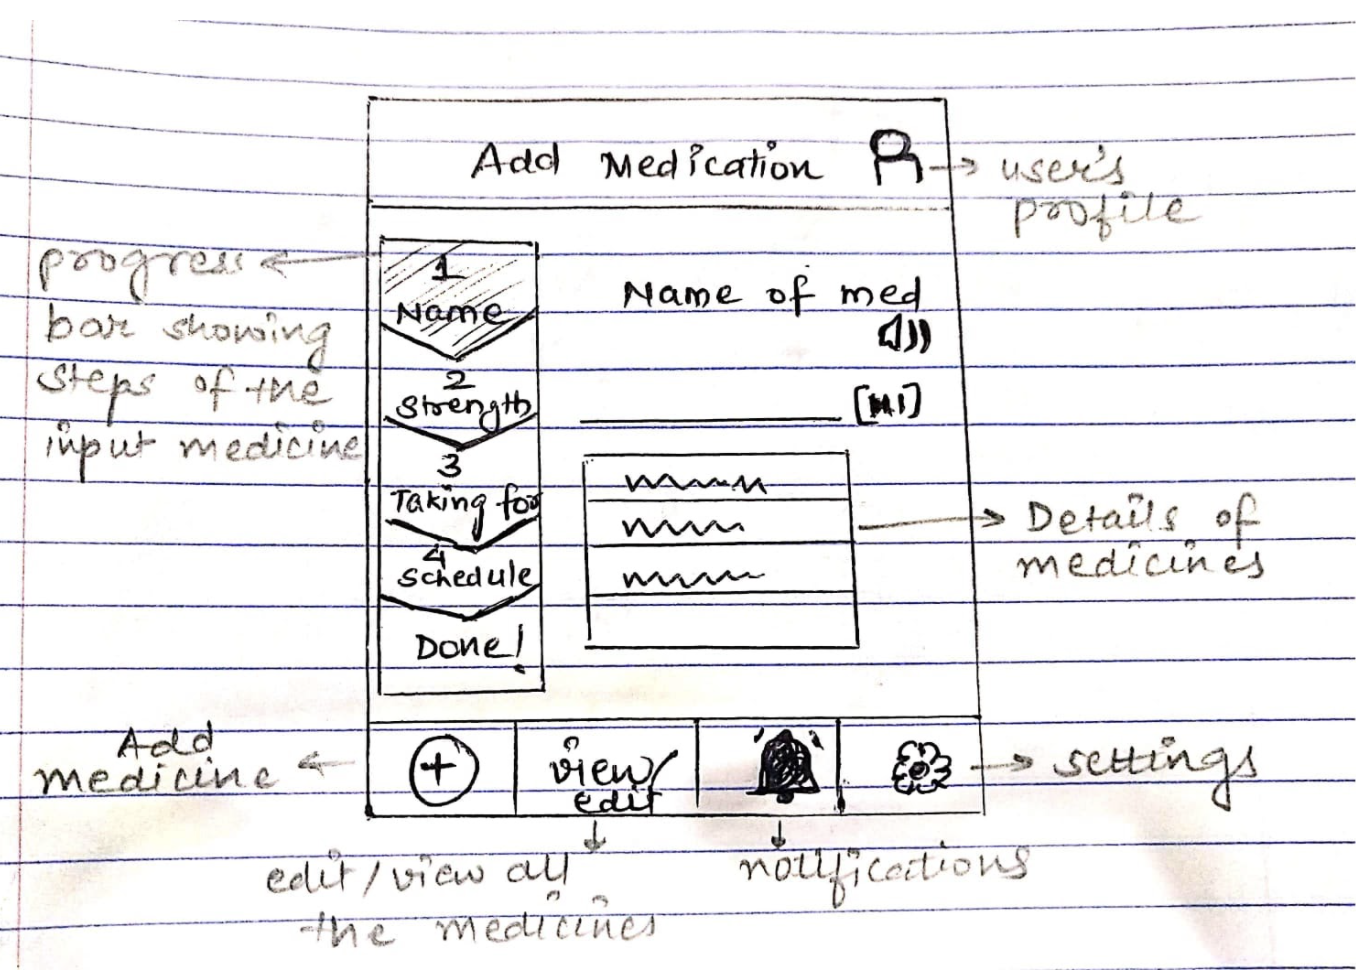 Add Medication
user's
profile
progress
bar showing
steps of the
input medicine
1
Name
2
Strength
3
Taking for
4
Schedule
Done!
Name of med
Details of
medicines
Add
medicine
+
view/
edit
settings
edit/view all
the medicines
notifications